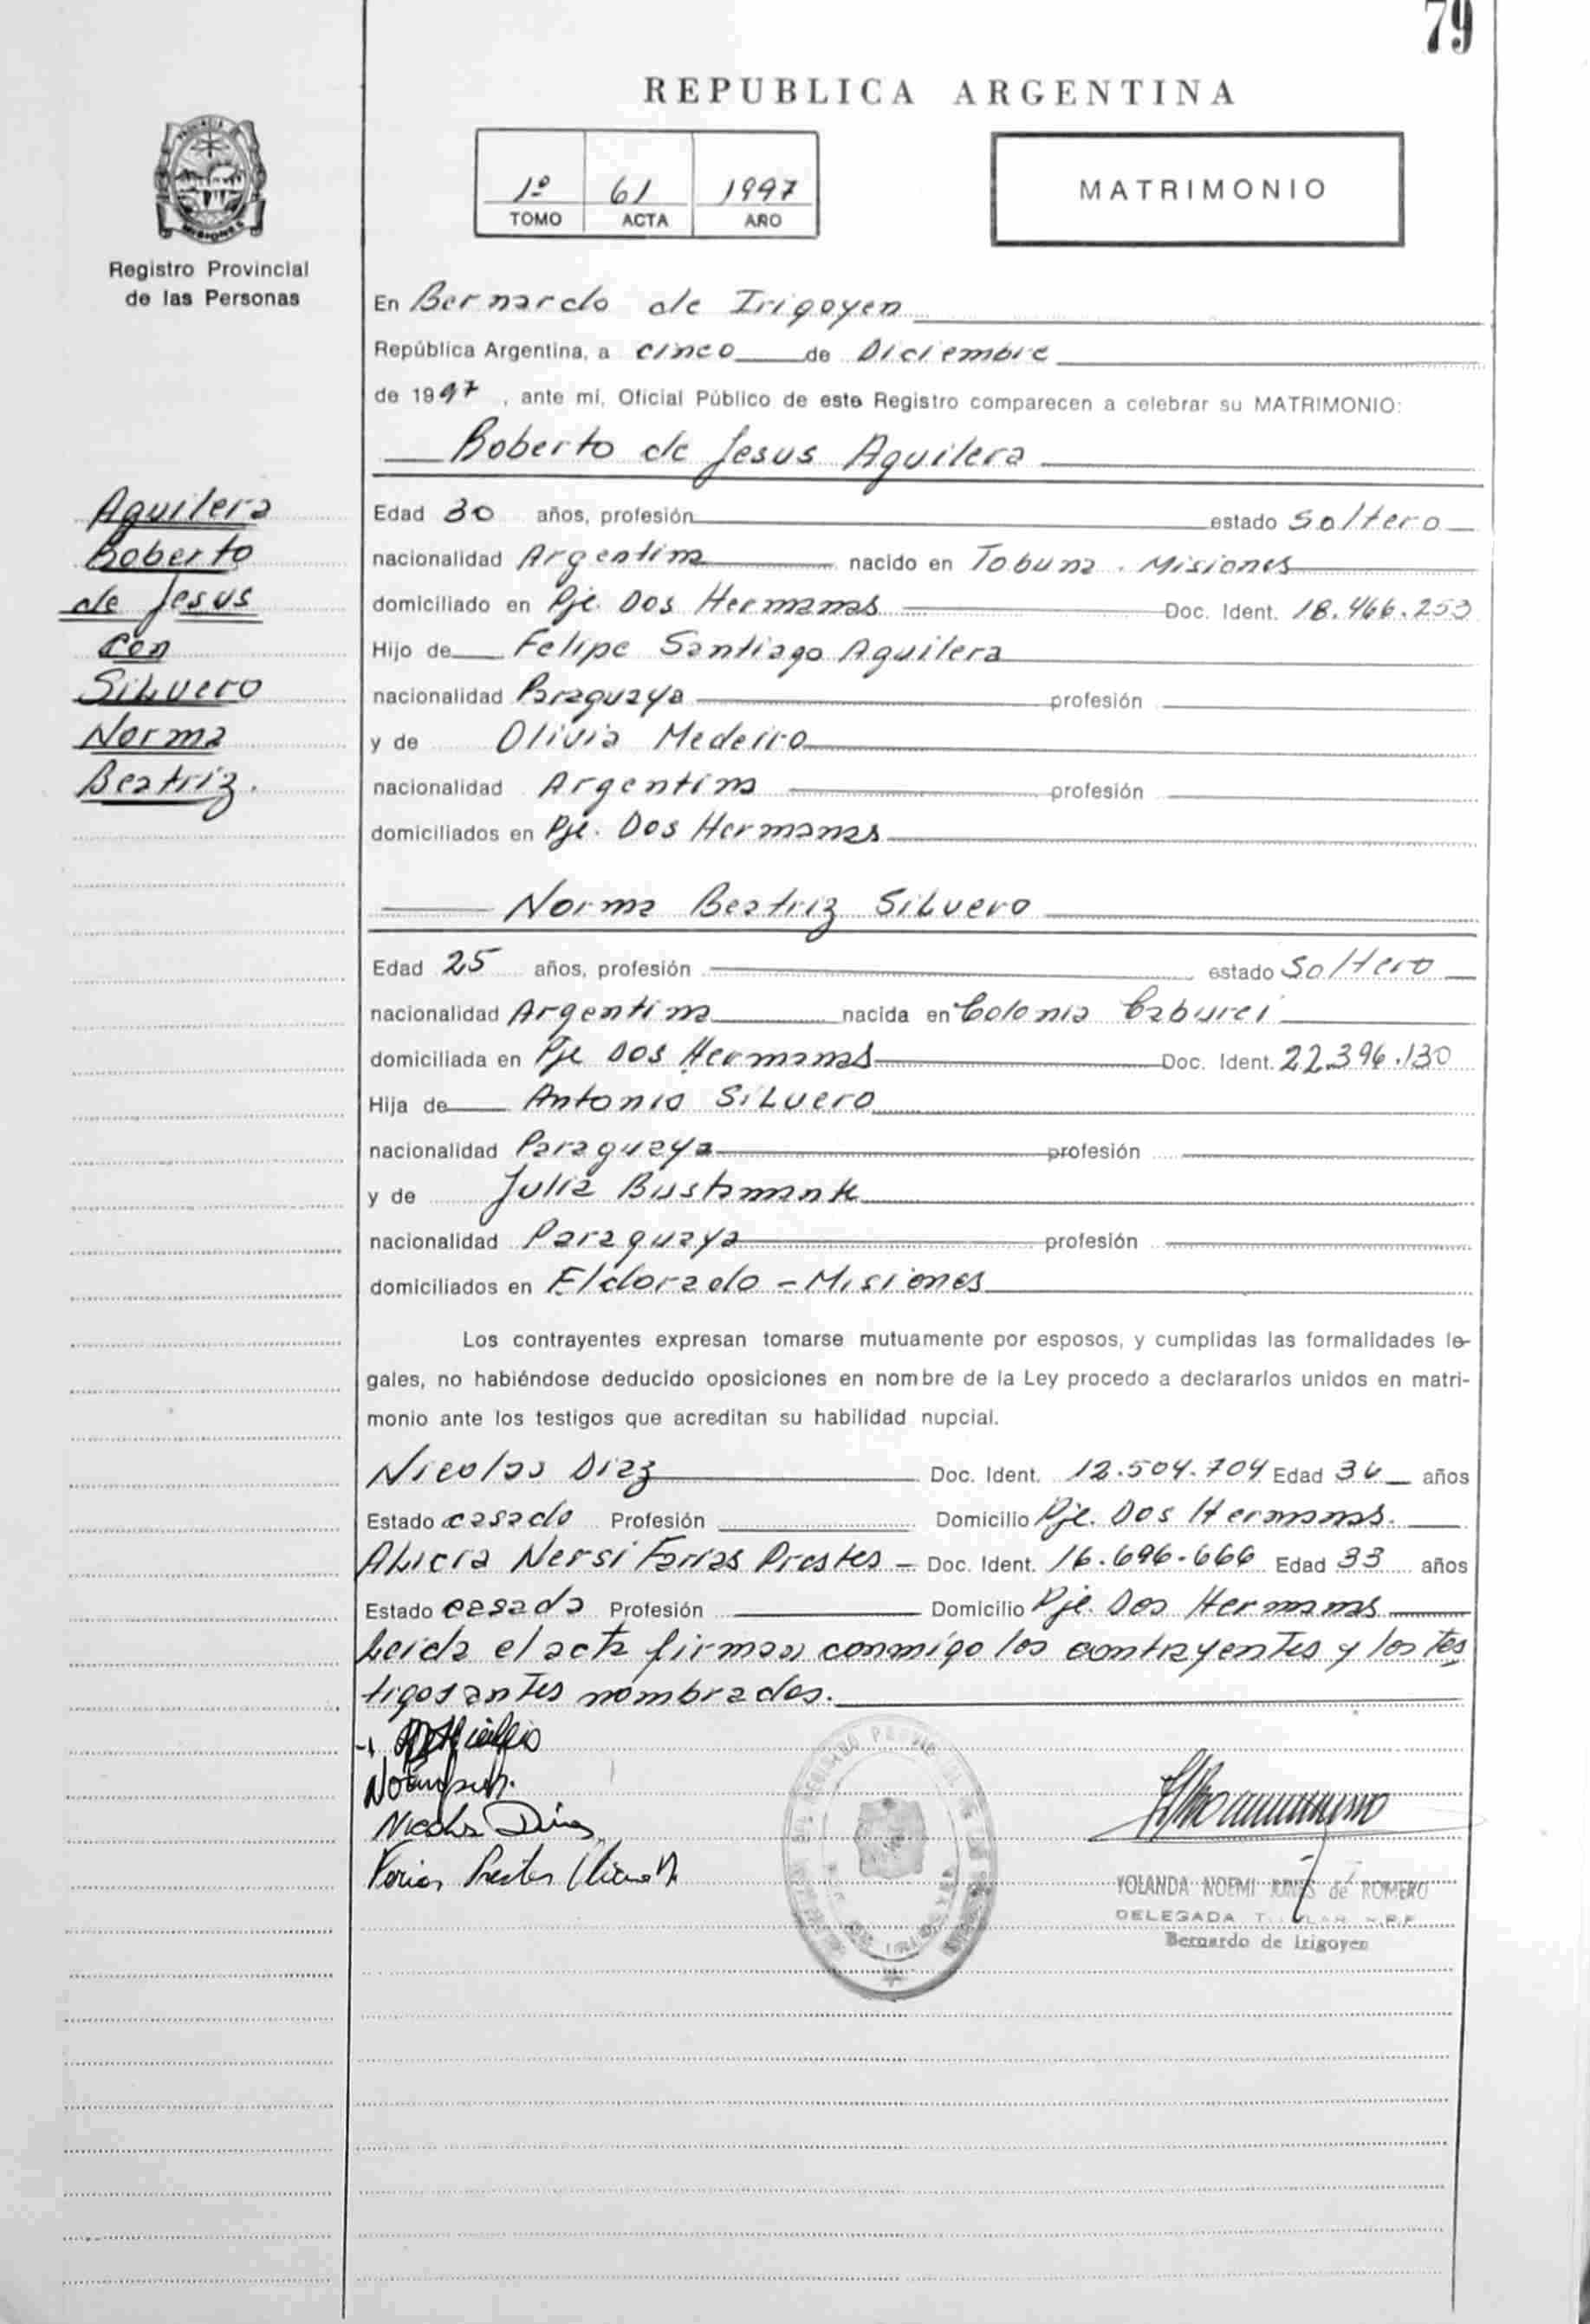 79
REPUBLICA ARGENTINA
1º 61 1997
TOMO ACTA AÑO
MATRIMONIO
Registro Provincial
de las Personas
En Bernardo de Irigoyen
República Argentina, a cinco de Diciembre
de 1997, ante mí, Oficial Público de este Registro comparecen a celebrar su MATRIMONIO:
Roberto de Jesus Aguilera
Aguilera
Roberto
de Jesus
con
Silvero
Norma
Beatriz.
Edad 30 años, profesión estado soltero
nacionalidad Argentina nacido en Tobuna. Misiones
domiciliado en Pje. Dos Hermanas Doc. Ident. 18.466.253
Hijo de Felipe Santiago Aguilera
nacionalidad Paraguaya profesión
y de Olivia Medeiro
nacionalidad Argentina profesión
domiciliados en Pje. Dos Hermanas
Norma Beatriz Silvero
Edad 25 años, profesión estado soltero
nacionalidad Argentina nacida en Colonia Caburei
domiciliada en Pje Dos Hermanas Doc. Ident. 22.396.130
Hija de Antonio Silvero
nacionalidad Paraguaya profesión
y de Julia Bustamante
nacionalidad Paraguaya profesión
domiciliados en Eldorado - Misiones
Los contrayentes expresan tomarse mutuamente por esposos, y cumplidas las formalidades le-
gales, no habiéndose deducido oposiciones en nombre de la Ley procedo a declararlos unidos en matri-
monio ante los testigos que acreditan su habilidad nupcial.
Nicolas Diaz Doc. Ident. 12.504.704 Edad 36 años
Estado casado Profesión Domicilio Pje. Dos Hermanas.
Alicia Nersi Farias Prestes - Doc. Ident. 16.696.666 Edad 33 años
Estado casada Profesión Domicilio Pje. Dos Hermanas
Leida el acta firman conmigo los contrayentes y los tes
tigos antes nombrados.
Nicolas Diaz
Farias Prestes Alicia N.
YOLANDA NOEMI JUNES de ROMERO
DELEGADA
Bernardo de Irigoyen